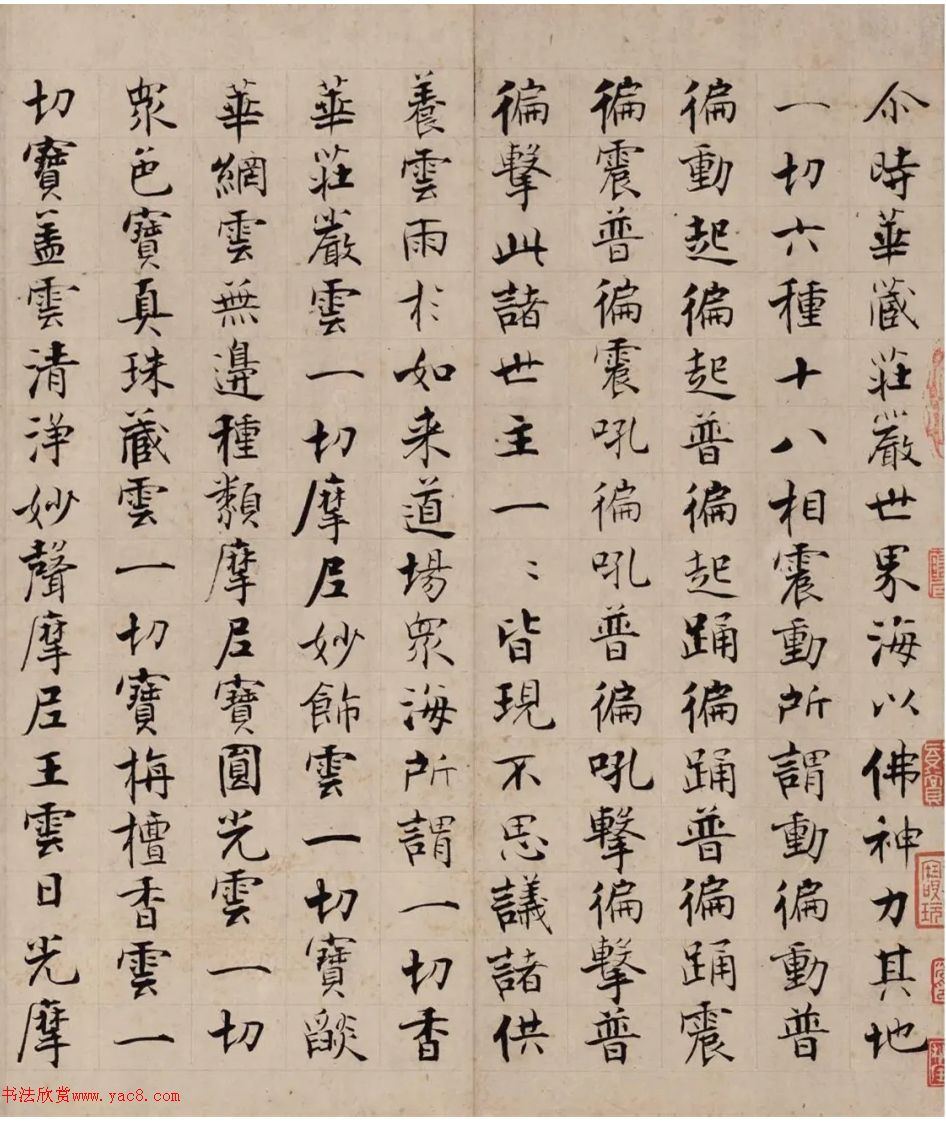 尒時華蔵莊嚴世界海以佛神力其地
一切六種十八相震動所謂動徧動普
徧動起徧起普徧起踊徧踊普徧踊震
徧震普徧震吼徧吼普徧吼擊徧擊普
徧擊此諸世主一〻皆現不思議諸供
養雲雨於如来道場衆海所謂一切香
華莊嚴雲一切摩尼妙飾雲一切寶燄
華網雲無邊種類摩尼寶圓光雲一切
衆色寶真珠蔵雲一切寶栴檀香雲一
切寶盖雲清浄妙聲摩尼王雲日光摩
书法欣赏www.yac8.com